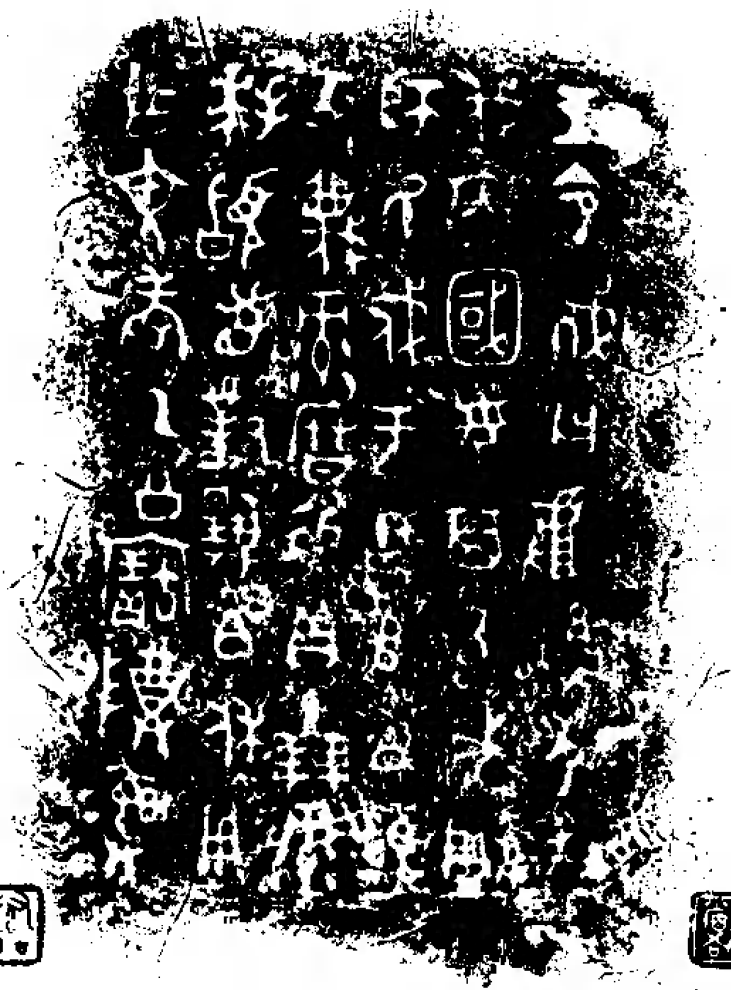 王令𢦚曰𠭯淮尸敢
伐内國女其以成周
師氏戍于𠂤白雍
父蔑彔曆易貝十朋彔
拜𩒨首對揚白休用
乍文考乙公寶尊彝